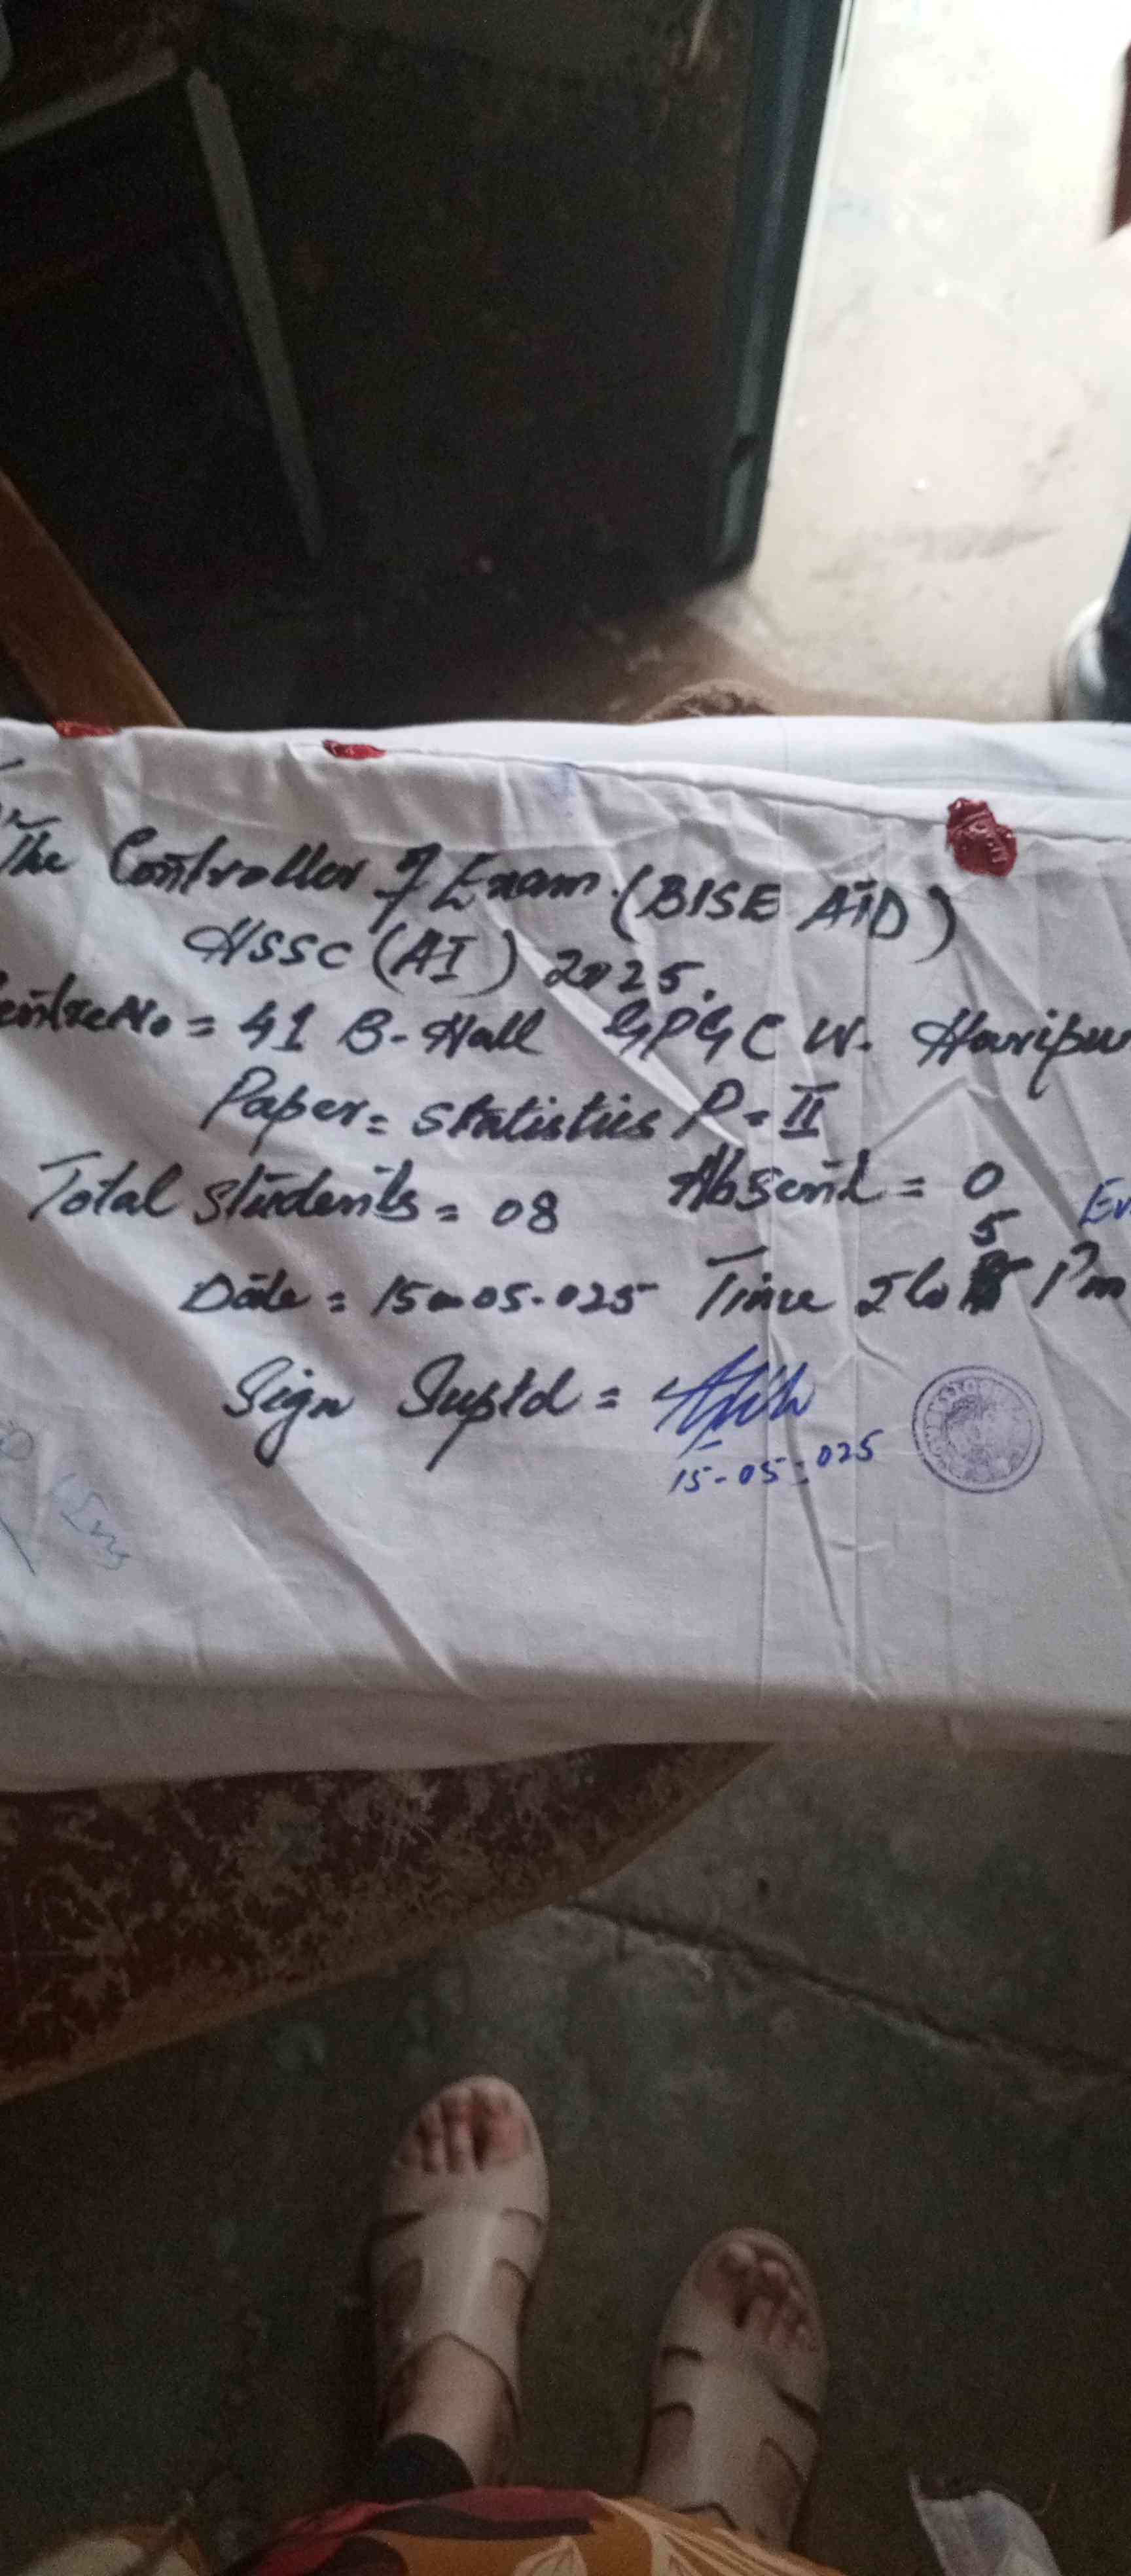 The Controller of Exam. (BISE ATD)
HSSC (AI) 2025.
Centre No = 41 B-Hall GPGC W. Haripur
Paper = Statistics P-II
Total students = 08 Absent = 0
5
Date = 15-05-025 Time 2 to Pm
Sign Suptd =
15-05-025